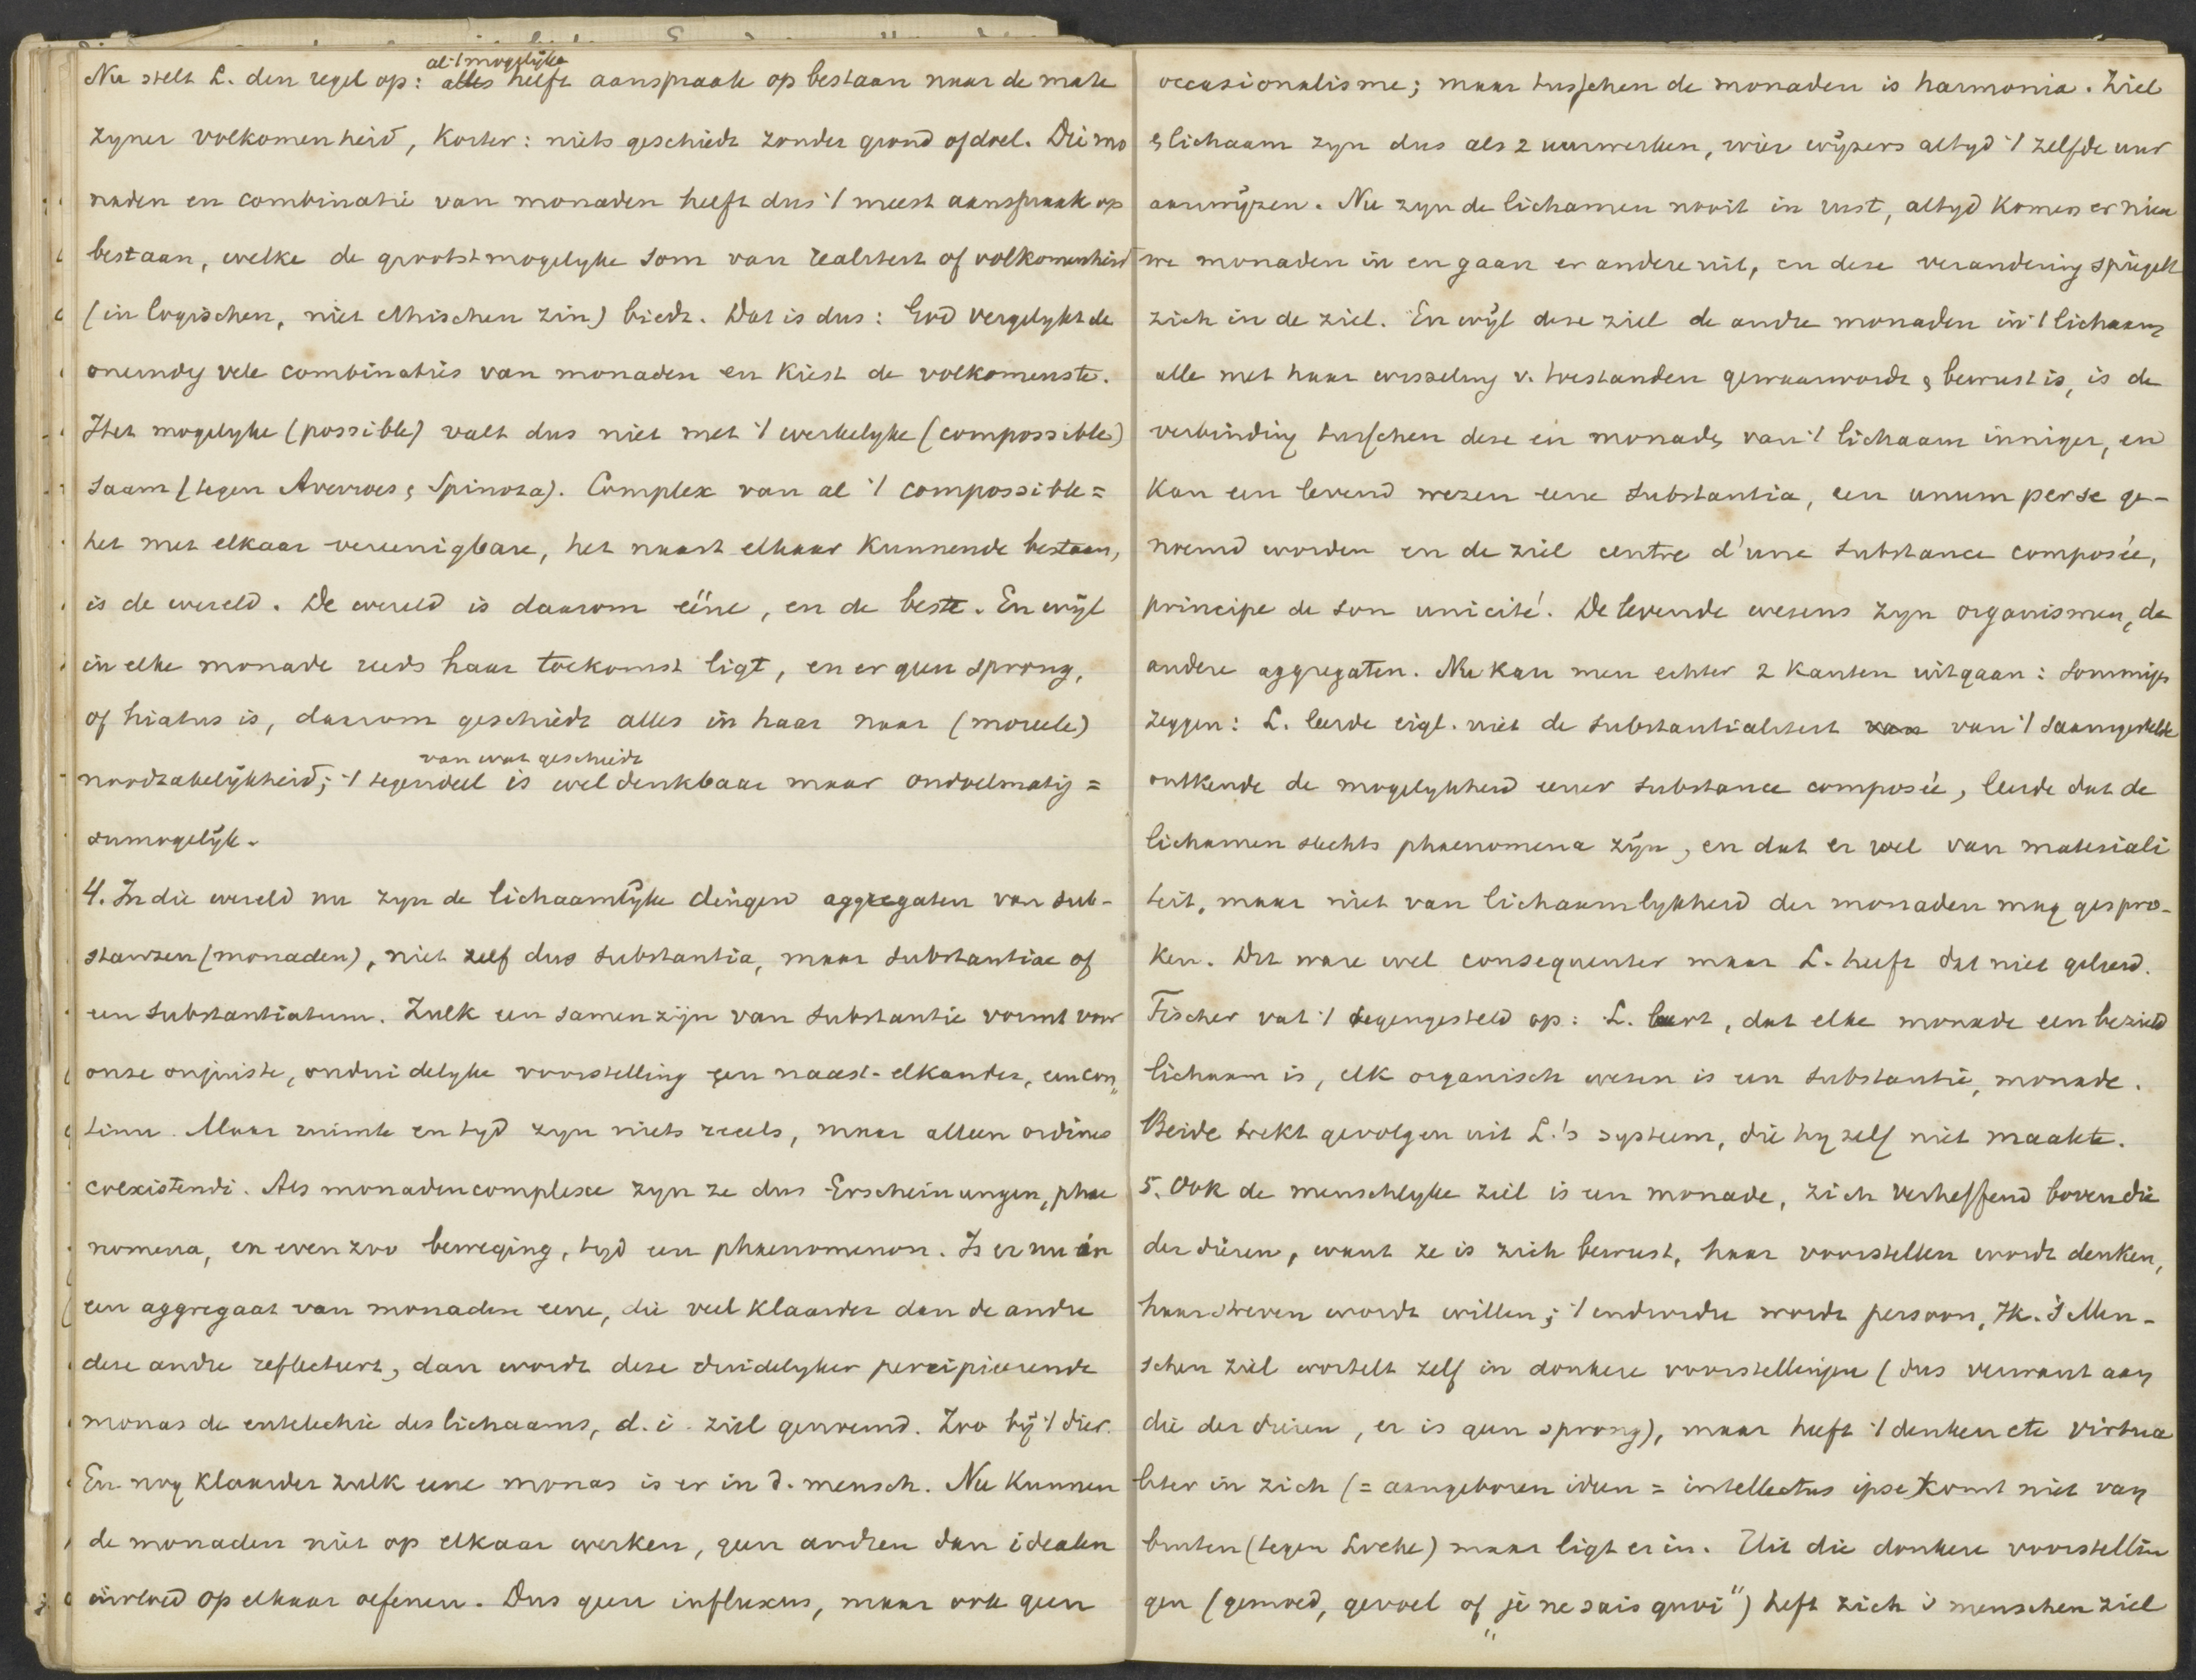 al 't mogelijke
Nu stelt L. den regel op: alles heeft aanspraak op bestaan naar de mate
zyner volkomenheid, korter: niets geschiedt zonder grond of doel. Die mo
naden en combinatie van monaden heeft dus 't meest aanspraak op
bestaan, welke de grootst mogelyke som van realiteit of volkomenheid
(in logischen, niet ethischen zin) biedt. Dat is dus: God vergelykt de
oneindig vele combinaties van monaden en kiest de volkomenste.
Het mogelyke (possible) valt dus niet met 't werkelyke (compossible)
saam (tegen Averroes & Spinoza). Complex van al 't compossible =
het met elkaar vereenigbare, het naast elkaar kunnende bestaan,
is de wereld. De wereld is daarom ééne, en de beste. En wijl
in elke monade reeds haar toekomst ligt, en er geen sprong,
of hiatus is, daarom geschiedt alles in haar naar (moreele)
van wat geschiedt
noodzakelijkheid; 't tegendeel is wel denkbaar maar ondoelmatig =
onmogelijk.
4. In die wereld nu zyn de lichaamlijke dingen aggregaten van sub-
stanzen (monaden), niet zelf dus substantia, maar substantiae of
een substantiatum. Zulk een samenzijn van substantie vormt voor
onze onjuiste, onduidelyke voorstelling een naast-elkander, een con„
tinu. Maar ruimte en tyd zyn niets reeels, maar alleen ordines
coexistendi. Als monadencomplexe zyn ze dus Erscheinungen, phae
nomena, en even zoo beweging, tyd een phaenomenon. Is er nu in
een aggregaat van monaden eene, die veel klaarder dan de andre
deze andre reflecteert, dan wordt deze duidelyker percipieerende
monas de entelechie des lichaams, d.i. ziel genoemd. Zoo bij 't dier.
En nog klaarder zulk eene monas is er in d. mensch. Nu kunnen
de monaden niet op elkaar werken, geen andren dan idealen
invloed op elkaar oefenen. Dus geen influxus, maar ook geen
occasionalisme; maar tusschen de monaden is harmonia. Ziel
& lichaam zyn dus als 2 uurwerken, wier wijzers altyd 't zelfde uur
aanwijzen. Nu zyn de lichamen nooit in rust, altyd komen er nieu
we monaden in en gaan er andere uit, en deze verandering spiegelt
zich in de ziel. En wijl deze ziel de andre monaden in 't lichaam
alle met haar wisseling v. toestanden gewaarwordt & bewust is, is de
verbinding tusschen deze één monade & van 't lichaam inniger, en
kan een levend wezen eene substantia, een unum per se ge-
noemd worden en de ziel centre d'une substance composée,
principe de son unicité. De levende wezens zyn organismen, de
andere aggregaten. Nu kan men echter 2 kanten uitgaan: sommige
zeggen: L. leerde eigl. niet de substantialiteit van van 't saamgestelde
ontkende de mogelykheid eener substance composée, leerde dat de
lichamen slechts phaenomena zijn, en dat er wel van materiali
teit, maar niet van lichaamlykheid der monaden mag gespro-
ken. Dit ware wel consequenter maar L. heeft dat niet geleerd.
Fischer vat 't tegengesteld op: L. leert, dat elke monade een bezield
lichaam is, elk organisch wezen is een substantie, monade.
Beide trekt gevolgen uit L.'s systeem, die hy zelf niet maakte.
5. Ook de menschlyke ziel is een monade, zich verheffend boven die
der dieren, want ze is zich bewust, haar voorstellen wordt denken,
haar streven wordt willen; 't individu wordt persoon, Ik. 's Men-
schen ziel wortelt zelf in donkere voorstellingen (dus verwant aan
die der dieren, er is geen sprong), maar heeft 't denken etc virtua
liter in zich (= aangeboren ideen = intellectus ipse) komt niet van
buiten (tegen Locke) maar ligt er in. Uit die donkere voorstellin
gen (gemoed, gevoel of „je ne sais quoi") heft zich d menschenziel